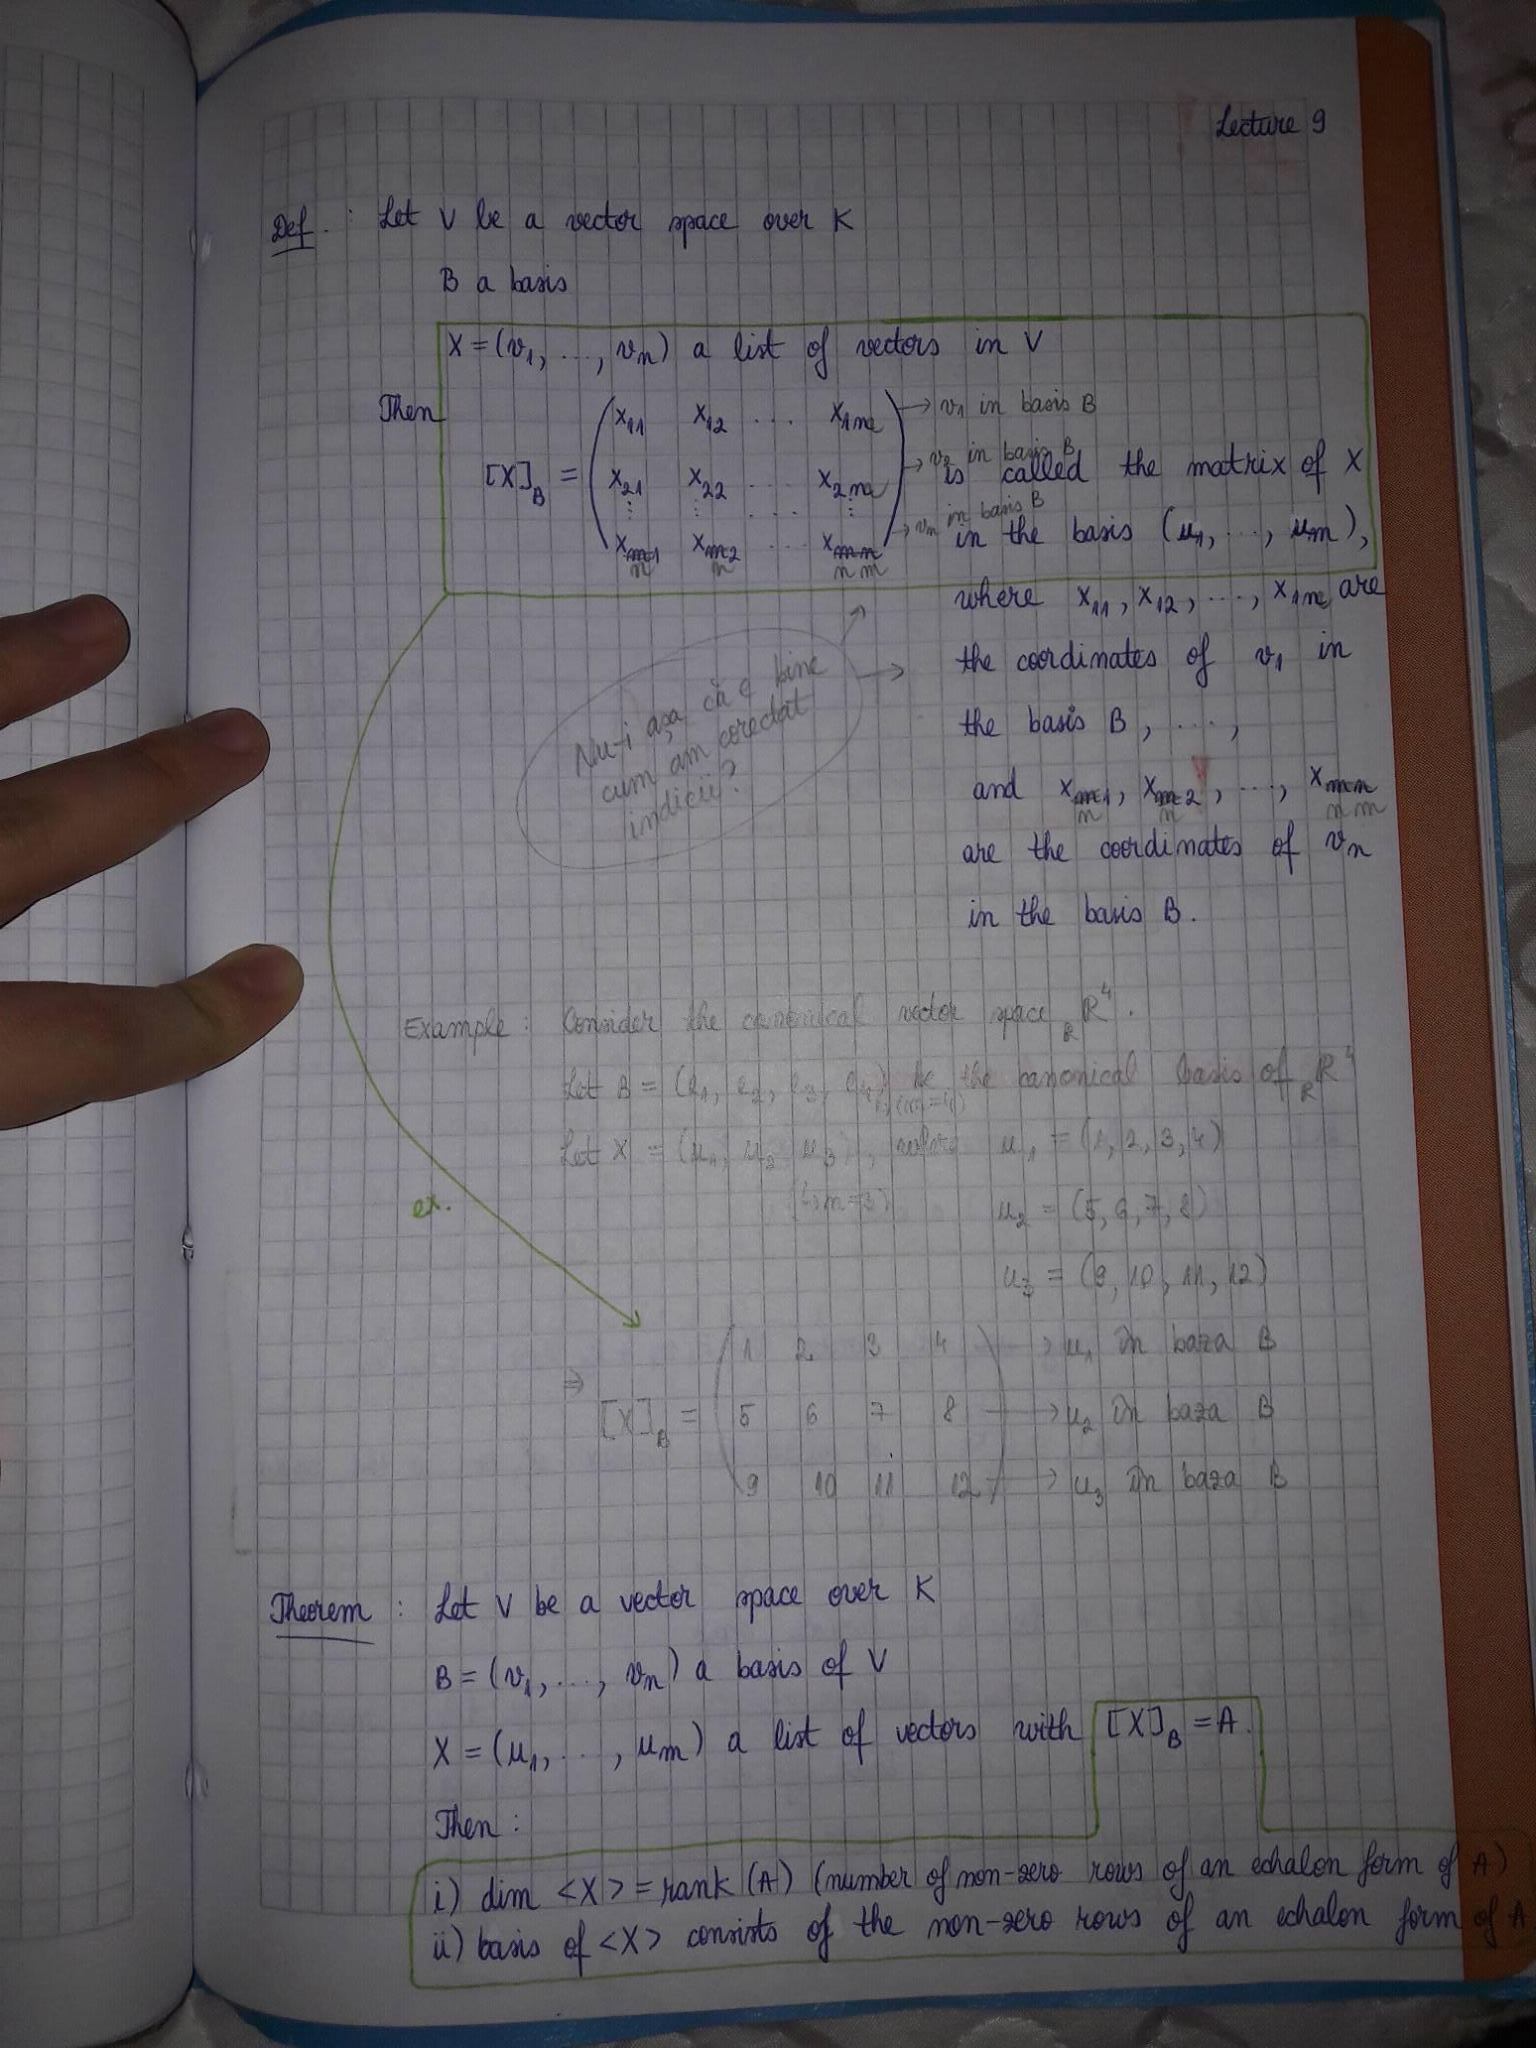 Lecture 9
Def. : Let V be a vector space over K
B a basis
X = (v₁, ..., vₙ) a list of vectors in V
Then
[X]_B = ( x₁₁ x₁₂ ... x₁ₘ ) → v₁ in basis B
x₂₁ x₂₂ ... x₂ₘ → v₂ in basis B
⋮ ⋮ ... ⋮
xₙ₁ xₙ₂ ... xₙₘ → vₙ in basis B
is called the matrix of X
in the basis (u₁, ..., uₘ),
where x₁₁, x₁₂, ..., x₁ₘ are
the coordinates of v₁ in
the basis B, ...,
and xₙ₁, xₙ₂, ..., xₙₘ
are the coordinates of vₙ
in the basis B.
Nu-i așa că e bine
cum am corectat
indicii?
Example : Consider the canonical vector space _R R⁴.
Let B = (e₁, e₂, e₃, e₄) be the canonical basis of _R R⁴
(m=4)
Let X = (u₁, u₂, u₃), where u₁ = (1, 2, 3, 4)
(↳n=3)
u₂ = (5, 6, 7, 8)
u₃ = (9, 10, 11, 12)
ex.
⇒ [X]_B = ( 1 2 3 4 ) → u₁ în baza B
5 6 7 8 → u₂ în baza B
9 10 11 12 → u₃ în baza B
Theorem : Let V be a vector space over K
B = (v₁, ..., vₙ) a basis of V
X = (u₁, ..., uₘ) a list of vectors with [X]_B = A.
Then :
i) dim <X> = rank (A) (number of non-zero rows of an echalon form of A)
ii) basis of <X> consists of the non-zero rows of an echalon form of A